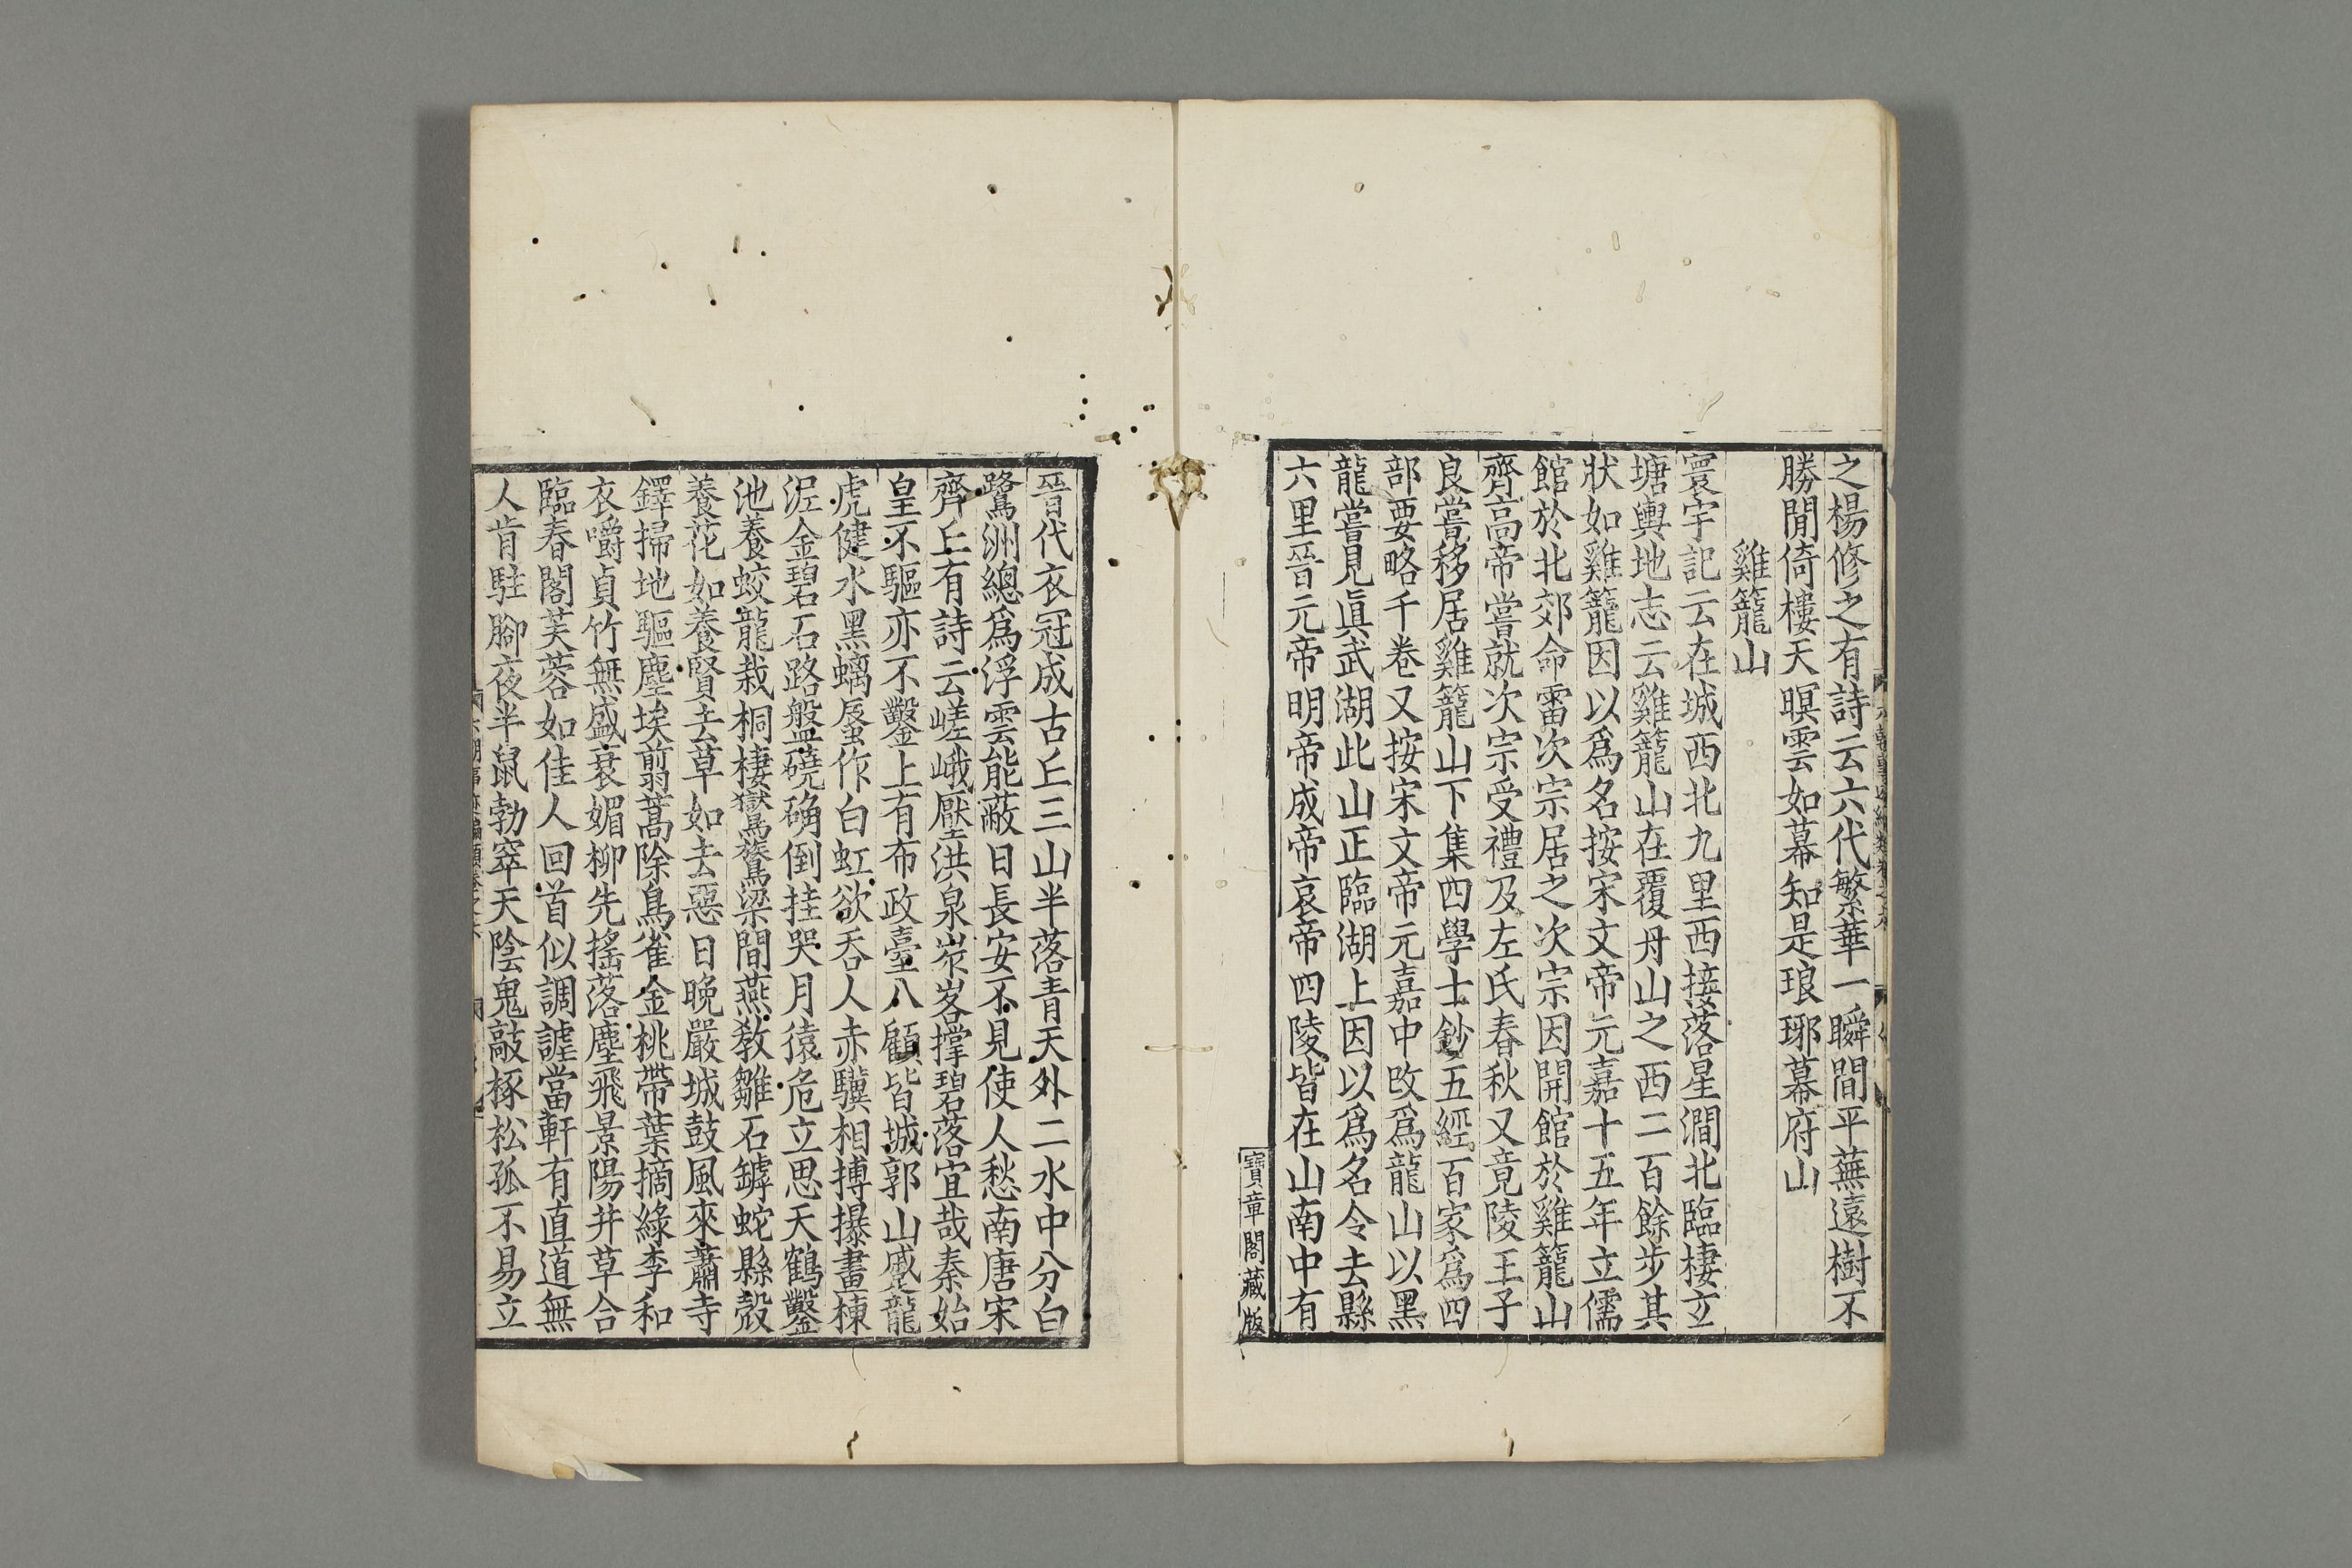 之楊修之有詩云六代繁華一瞬間平蕪遠樹不
勝閒倚樓天暝雲如幕知是琅琊幕府山
雞籠山
寰宇記云在城西北九里西接落星澗北臨棲玄
塘輿地志云雞籠山在覆舟山之西二百餘步其
狀如雞籠因以爲名按宋文帝元嘉十五年立儒
館於北郊命雷次宗居之次宗因開館於雞籠山
齊高帝嘗就次宗受禮及左氏春秋又竟陵王子
良嘗移居雞籠山下集四學士鈔五經百家爲四
部要略千卷又按宋文帝元嘉中改爲龍山以黑
龍嘗見眞武湖此山正臨湖上因以爲名今去縣
六里晉元帝明帝成帝哀帝四陵皆在山南中有
寶章閣藏版
晉代衣冠成古丘三山半落青天外二水中分白
鷺洲總爲浮雲能蔽日長安不見使人愁南唐宋
齊丘有詩云嵯峨壓洪泉岝峉撑碧落宜哉秦始
皇不驅亦不鑿上有布政臺八顧皆城郭山蹙龍
虎健水黑螭蜃作白虹欲吞人赤驥相搏㩧畫棟
泥金碧石路盤磽确倒挂哭月猿危立思天鶴鑿
池養蛟龍栽桐棲鸑鷟梁間燕敎雛石罅蛇縣殻
養花如養賢去草如去惡日晚嚴城鼓風來蕭寺
鐸掃地驅塵埃翦蒿除鳥雀金桃帶葉摘綠李和
衣嚼貞竹無盛衰媚柳先搖落塵飛景陽井草合
臨春閣芙蓉如佳人回首似調謔當軒有直道無
人肯駐腳夜半鼠勃窣天陰鬼敲㧻松孤不易立